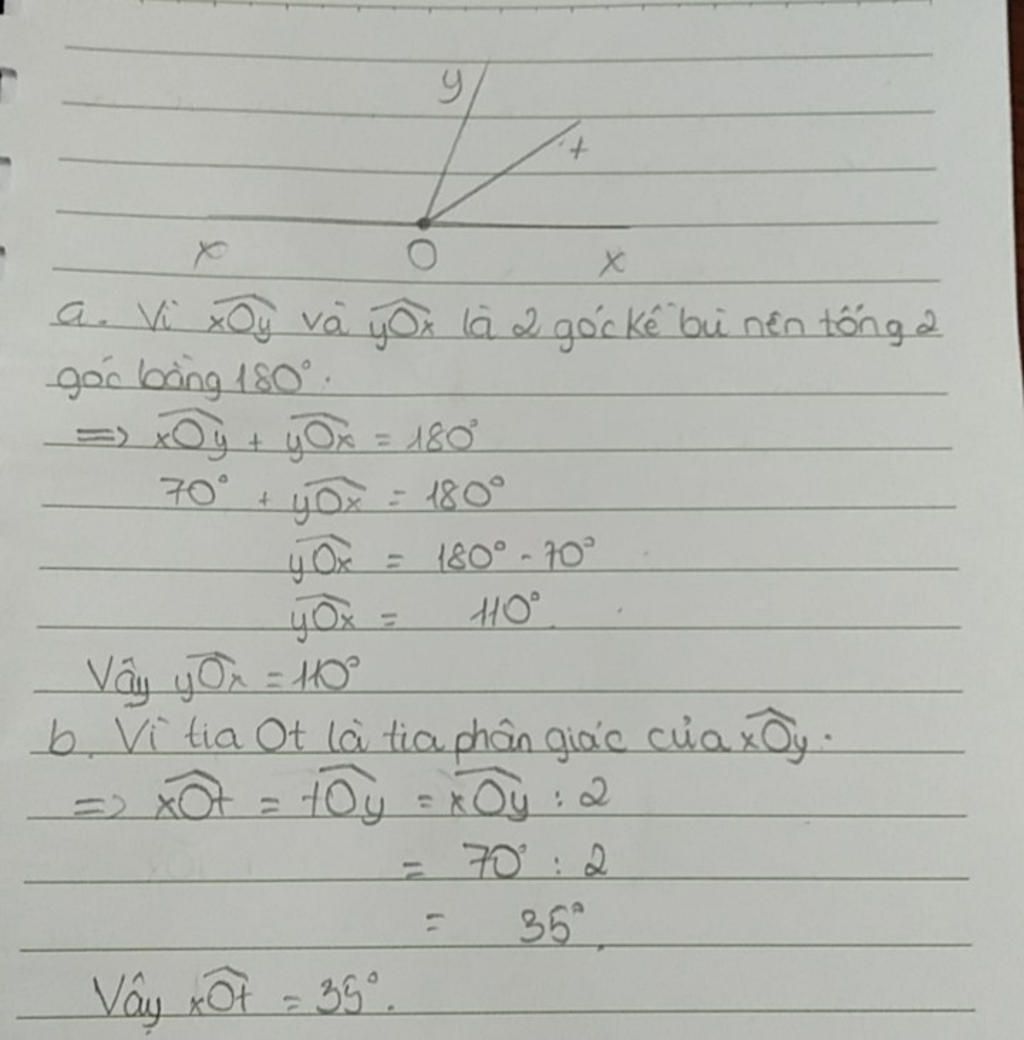 y
t
x O x
a. Vì xÔy và yÔx là 2 góc kề bù nên tổng 2
góc bằng 180°.
=> xÔy + yÔx = 180°
70° + yÔx = 180°
yÔx = 180° - 70°
yÔx = 110°.
Vây yÔx = 110°
b. Vì tia Ot là tia phân giác của xÔy.
=> xÔt = tÔy = xÔy : 2
= 70° : 2
= 35°.
Vậy xÔt = 35°.